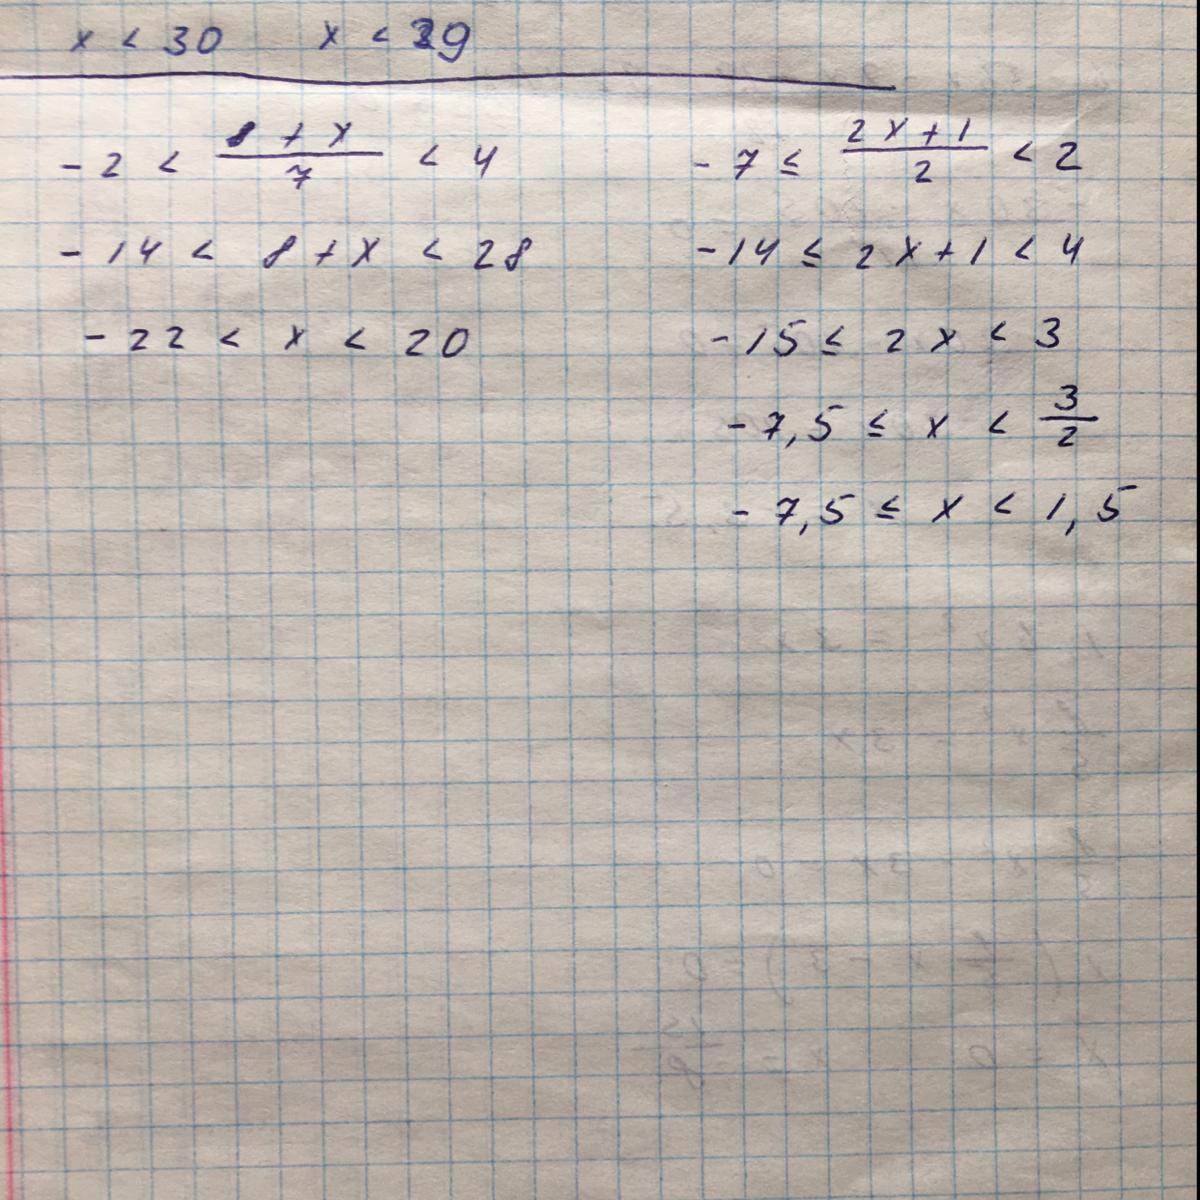 x < 30 x < 29
-2 < (8 + x)/7 < 4
-14 < 8 + x < 28
-22 < x < 20
-7 ≤ (2x + 1)/2 < 2
-14 ≤ 2x + 1 < 4
-15 ≤ 2x < 3
-7,5 ≤ x < 3/2
-7,5 ≤ x < 1,5